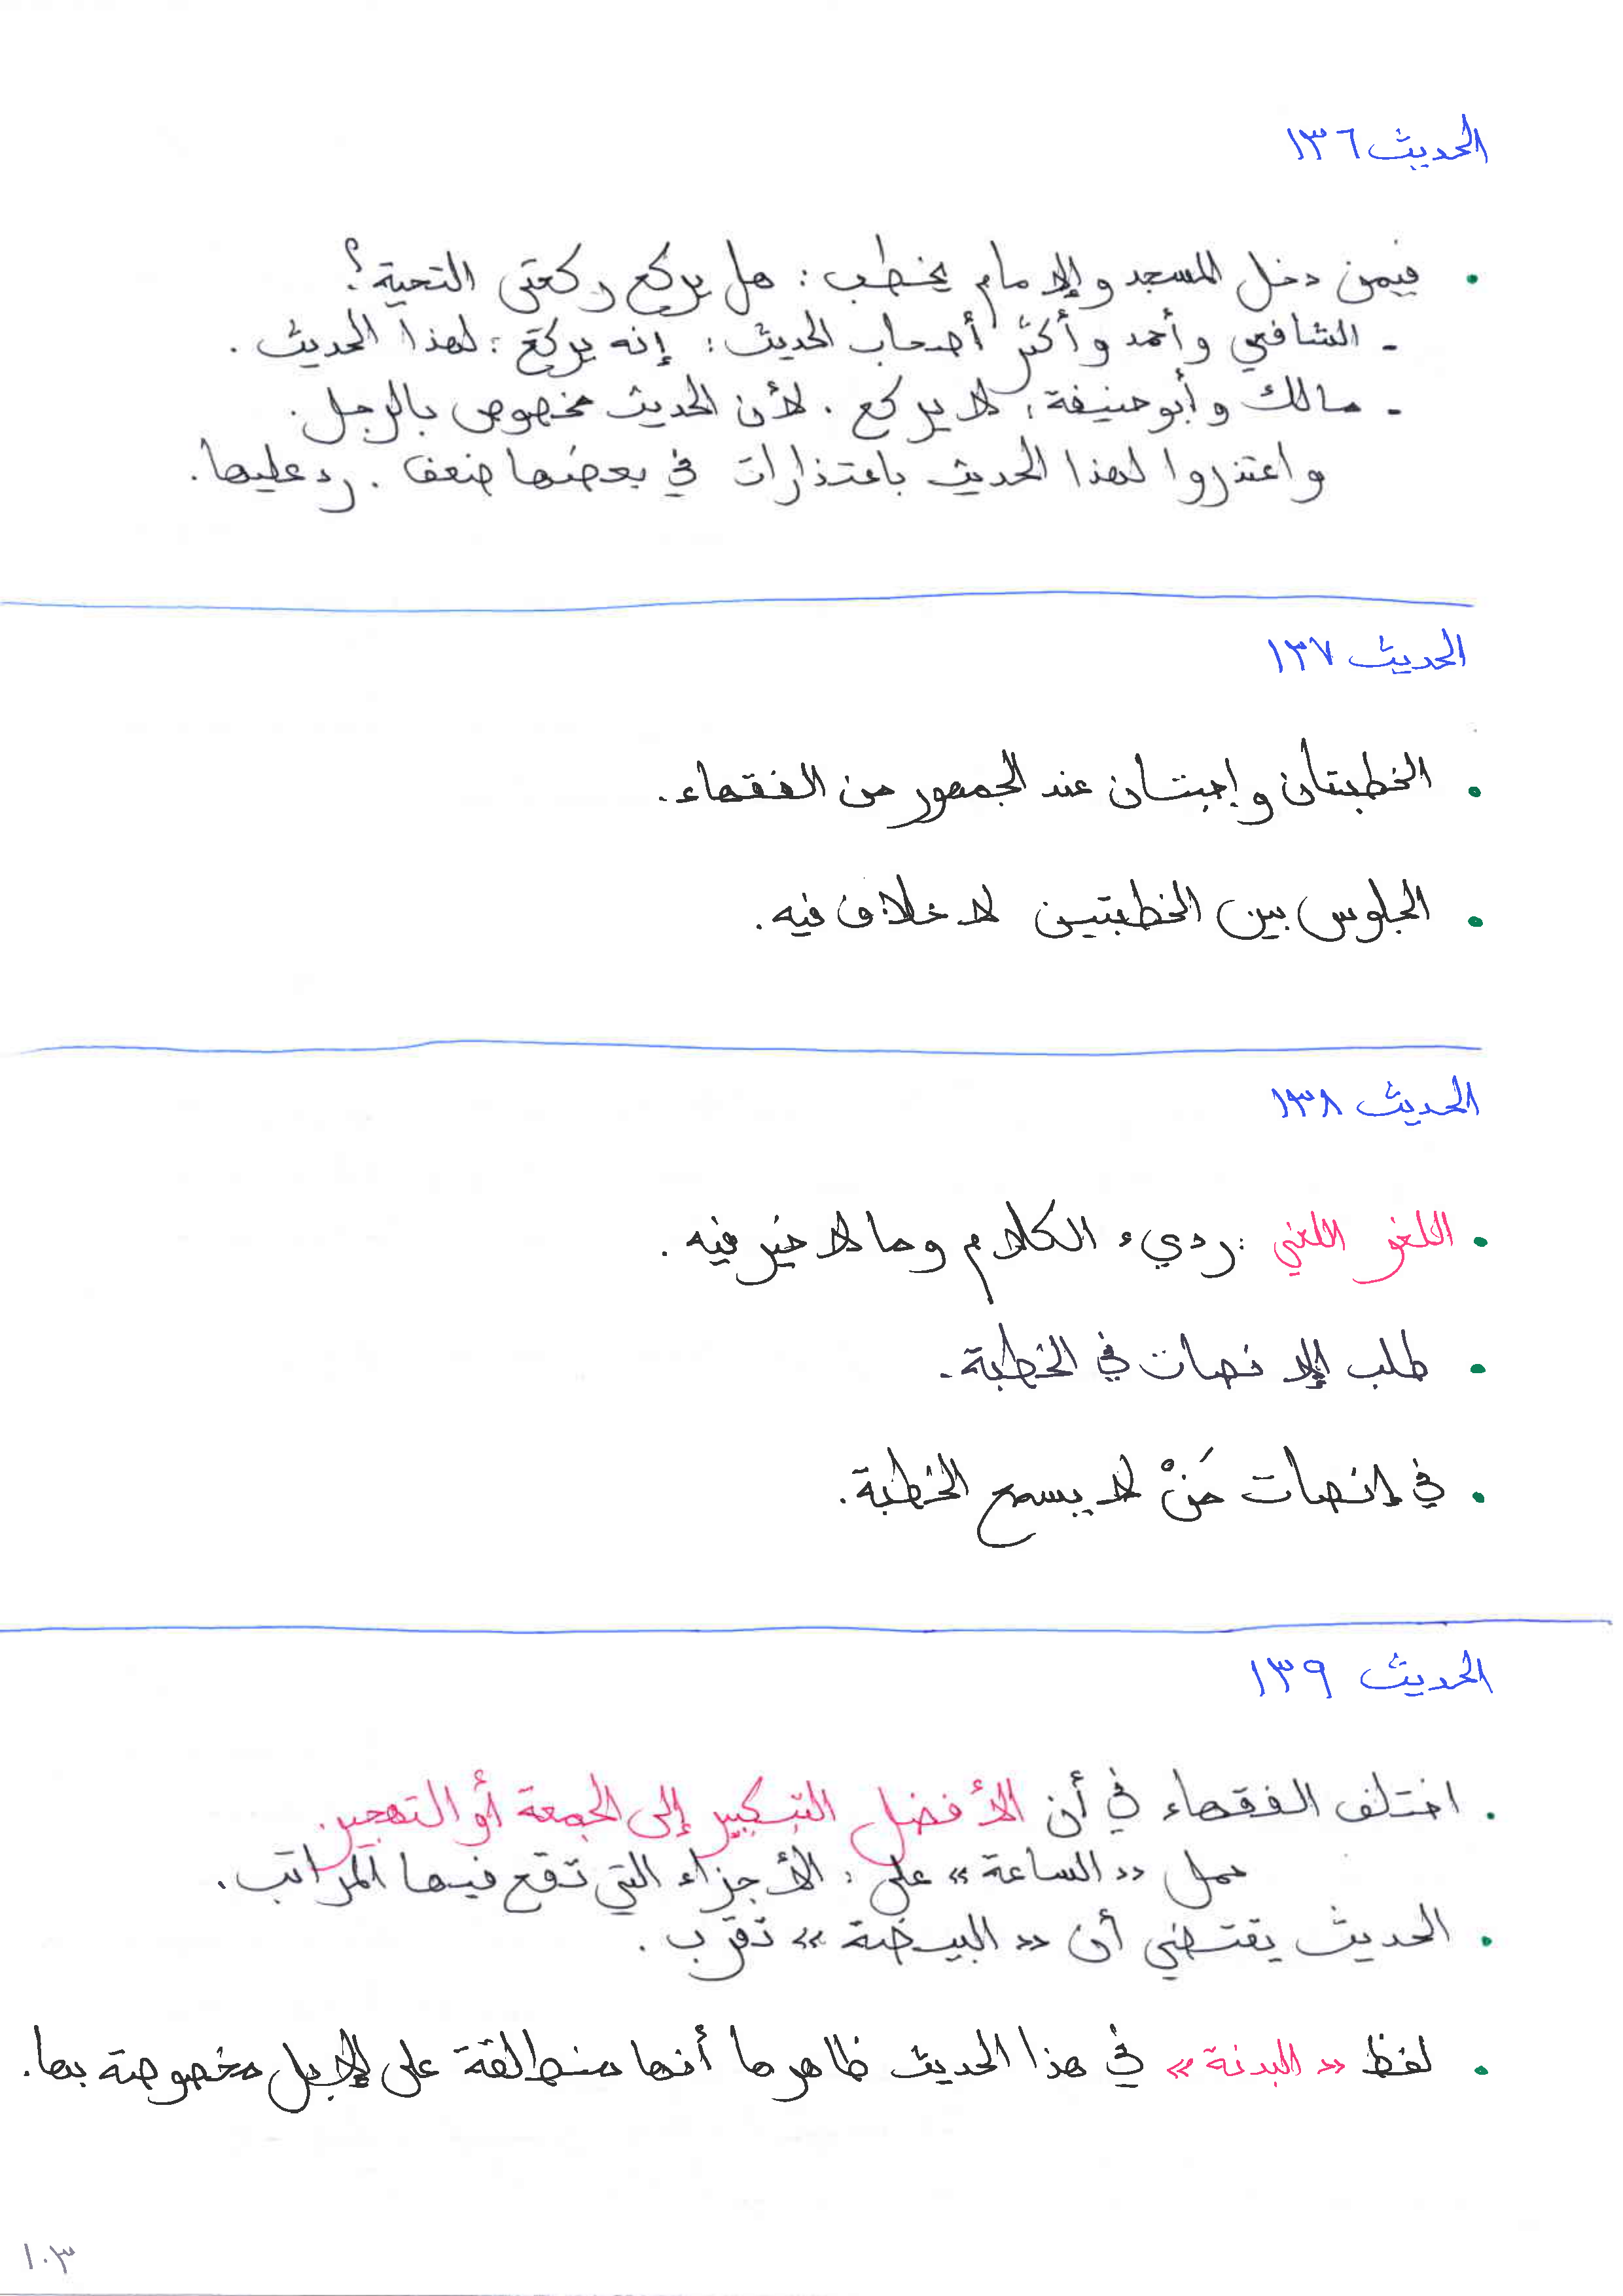 الحديث ١٣٦
• فيمن دخل المسجد والإمام يخطب: هل يركع ركعتي التحية؟
- الشافعي وأحمد وأكثر أصحاب الحديث: إنه يركع؛ لهذا الحديث.
- مالك وأبو حنيفة: لا يركع. لأن الحديث مخصوص بالرجل.
واعتذروا لهذا الحديث باعتذارات في بعضها ضعف. رد عليها.
الحديث ١٣٧
• الخطبتان واجبتان عند الجمهور من الفقهاء.
• الجلوس بين الخطبتين لا خلاف فيه.
الحديث ١٣٨
• اللغو اللغي: رديء الكلام وما لا خير فيه.
• طلب الإنصات في الخطبة.
• في إنصات مَنْ لا يسمع الخطبة.
الحديث ١٣٩
• اختلف الفقهاء في أن الأفضل التبكير إلى الجمعة أو التهجير.
حمل «الساعة» على: الأجزاء التي تقع فيها المراتب.
• الحديث يقتضي أن «البيضة» تقرب.
• لفظ «البدنة» في هذا الحديث ظاهرها أنها منطلقة على الإبل مخصوصة بها.
١٠٣